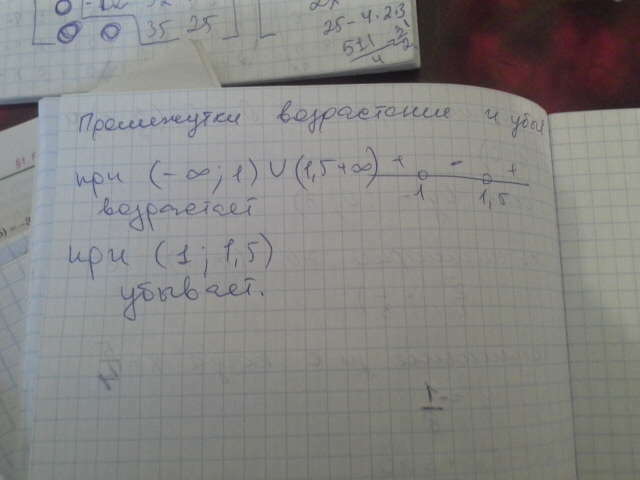 35 25
25-4·2·3
Промежутки возрастание и убы
при (-∞; 1) ∪ (1,5 +∞) + - +
1 1,5
возрастает
при (1; 1,5)
убывает.